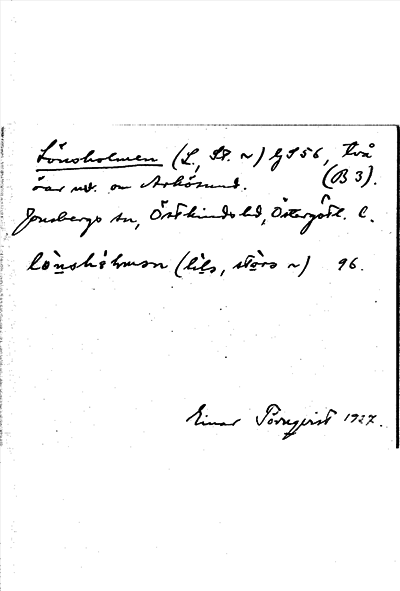 Lönsholmen (L., St. ~) GS56, två
öar nv. om Arkösund. (B 3).
Jonsbergs sn, Östkinds hd, Östergötl. l.
lönshòlmən (lìlə, stòra ~) 96.
Einar Törnqvist 1927.